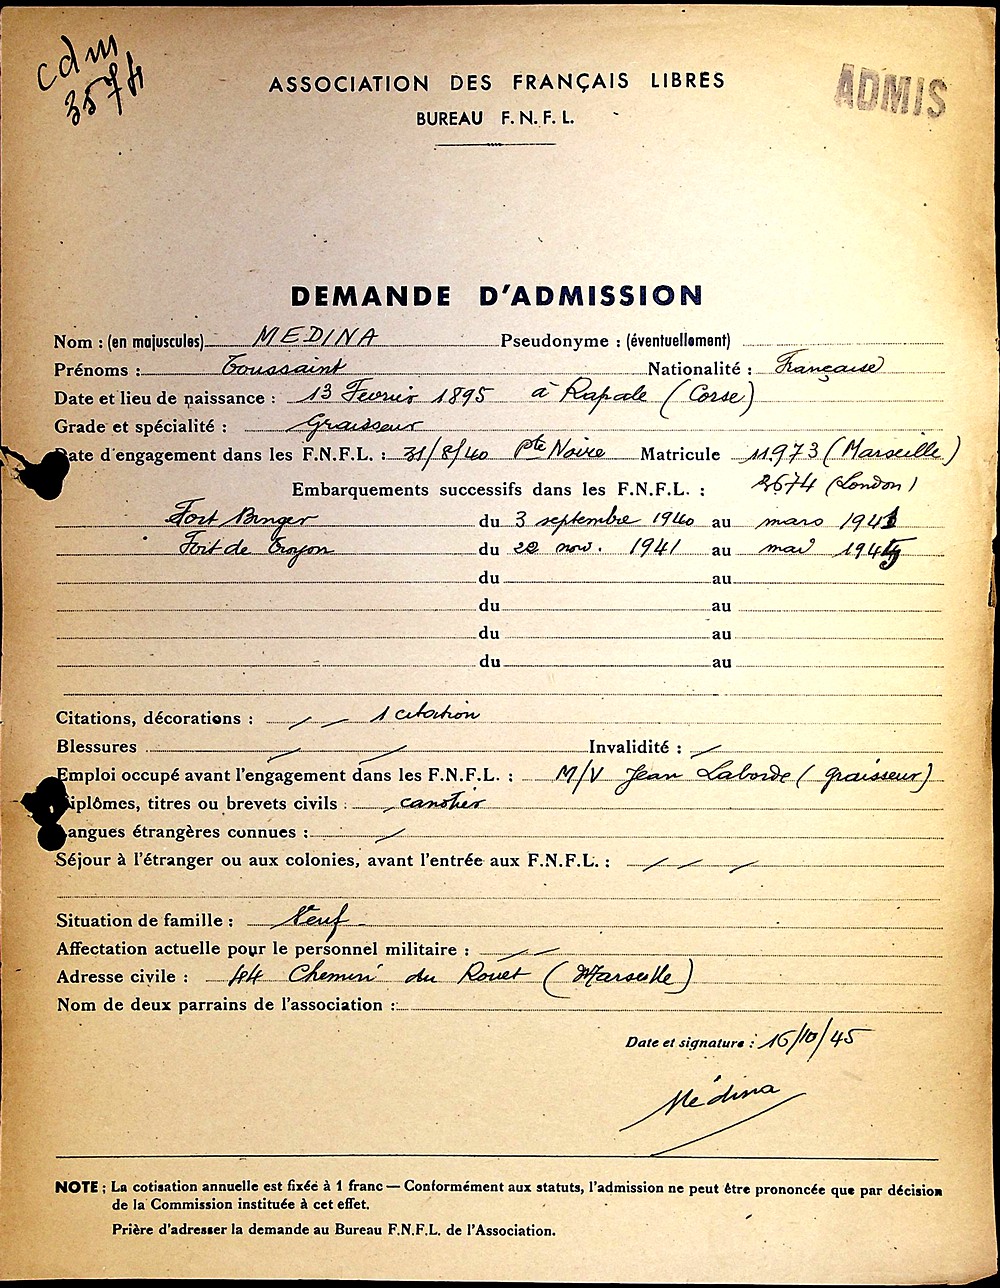 cdm
3574
ADMIS
ASSOCIATION DES FRANÇAIS LIBRES
BUREAU F. N. F. L.
DEMANDE D'ADMISSION
Nom : (en majuscules) MEDINA Pseudonyme : (éventuellement)
Prénoms : Toussaint Nationalité : Française
Date et lieu de naissance : 13 Fevrier 1895 à Rapale (Corse)
Grade et spécialité : Graisseur
Date d'engagement dans les F.N.F.L. : 31/8/40 Pte Noire Matricule 11973 (Marseille)
Embarquements successifs dans les F.N.F.L. : 3674 (London)
Fort Binger du 3 septembre 1940 au mars 1941
Fort de Troyon du 22 nov. 1941 au mai 1945
du au
du au
du au
du au
Citations, décorations : 1 citation
Blessures Invalidité :
Emploi occupé avant l'engagement dans les F.N.F.L. : M/V Jean Laborde (graisseur)
Diplômes, titres ou brevets civils : canotier
Langues étrangères connues :
Séjour à l'étranger ou aux colonies, avant l'entrée aux F.N.F.L. :
Situation de famille : Veuf
Affectation actuelle pour le personnel militaire :
Adresse civile : 44 Chemin du Rouet (Marseille)
Nom de deux parrains de l'association :
Date et signature : 16/10/45
Médina
NOTE : La cotisation annuelle est fixée à 1 franc — Conformément aux statuts, l'admission ne peut être prononcée que par décision
de la Commission instituée à cet effet.
Prière d'adresser la demande au Bureau F.N.F.L. de l'Association.